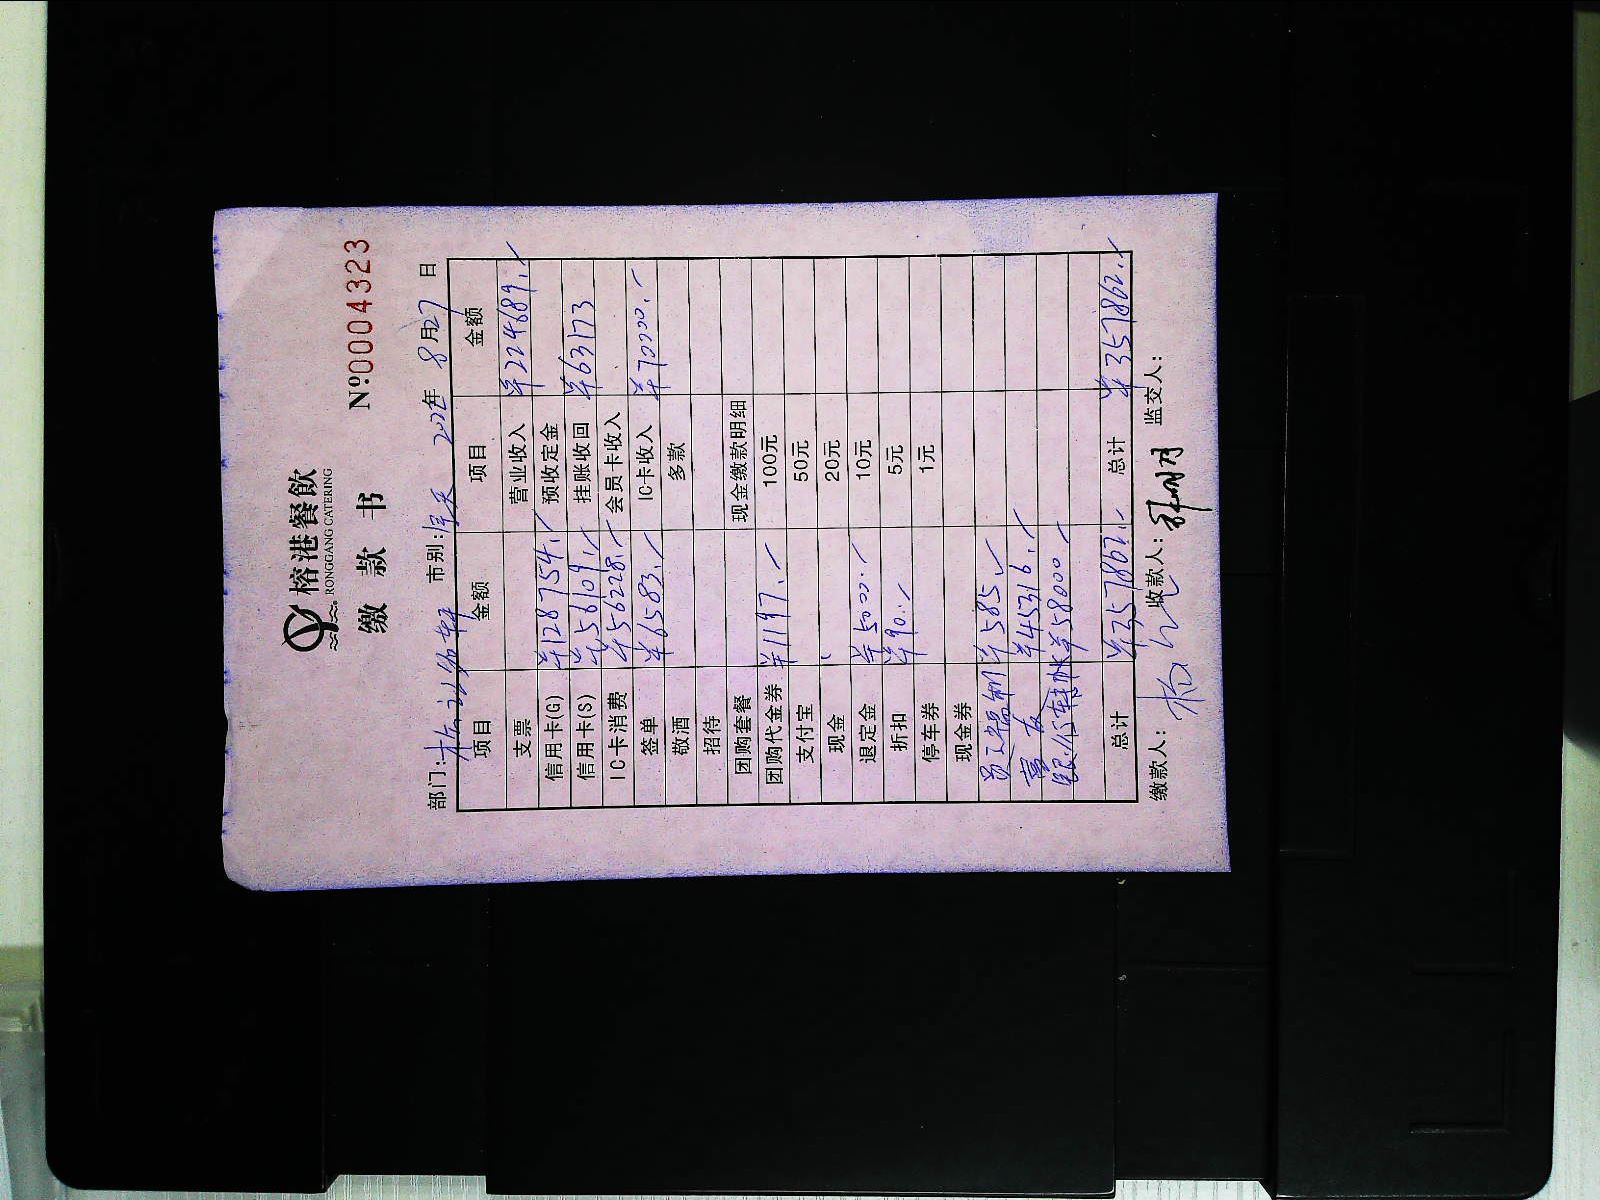 榕港餐飲
RONGGANG CATERING
缴 款 书
№0004323
部门: 市别:全天 年 8月27日
项目 金额 项目 金额
支票 营业收入 ¥224689.
信用卡(G) ¥128754. 预收定金
信用卡(S) ¥56109. 挂账收回 ¥63173
IC卡消费 ¥56228. 会员卡收入
签单 ¥6583. IC卡收入 ¥70000.
敬酒 多款
招待
团购套餐 现金缴款明细
团购代金券 ¥1197. 100元
支付宝 50元
现金 20元
退定金 ¥5000. 10元
折扣 ¥90. 5元
停车券 1元
现金券
员工福利 ¥585
¥45316.
银行转帐 ¥58000
总计 ¥357862. 总计 ¥357862.
缴款人: 收款人: 监交人: